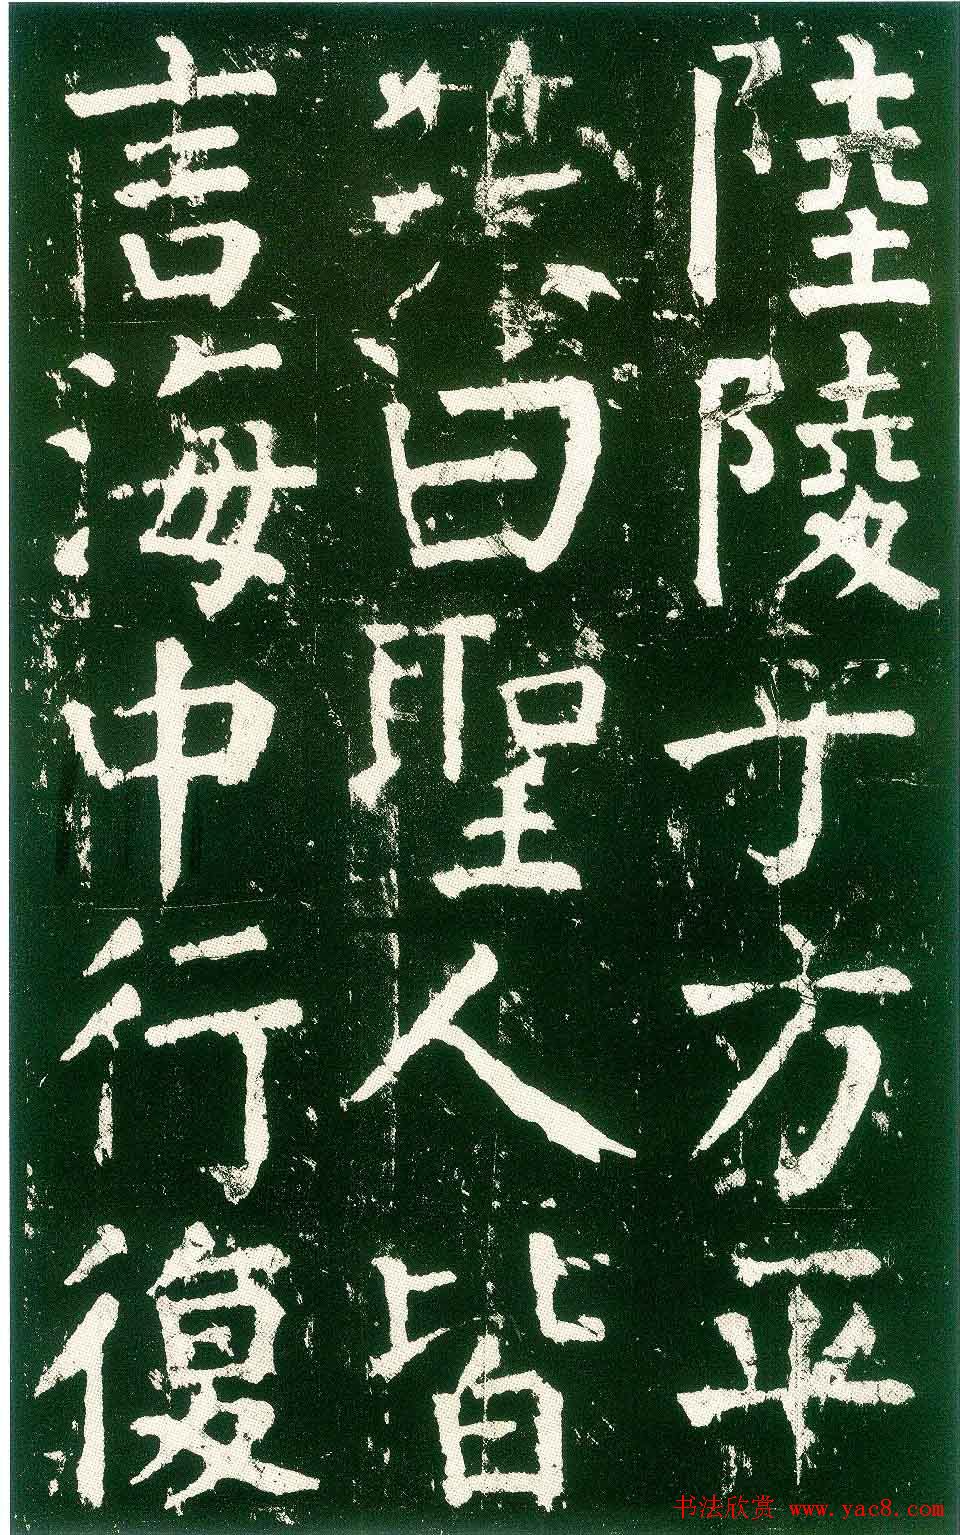 陸陵乎方平
笑曰聖人皆
言海中行復
书法欣赏 www.yac8.com